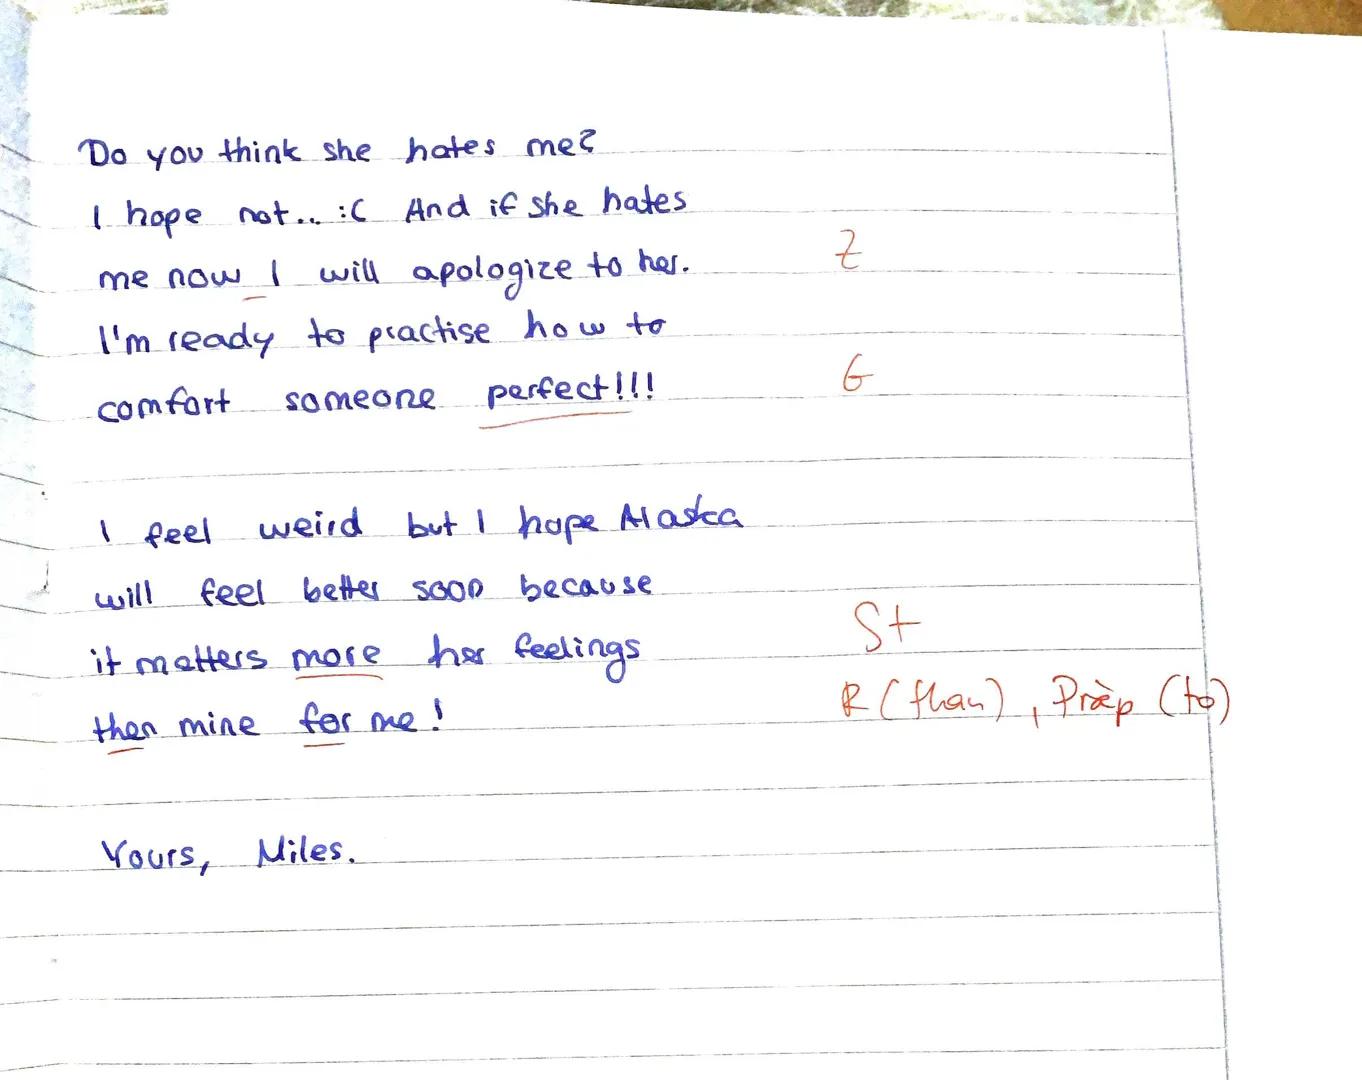 Do you think she hates me?
I hope not... :( And if she hates
me now I will apologize to her.
Z
I'm ready to practise how to
comfort someone perfect!!!
G
I feel weird but I hope Alaska
will feel better soon because
it matters more her feelings
St
then mine for me!
R (than), Präp (to)
Yours, Miles.